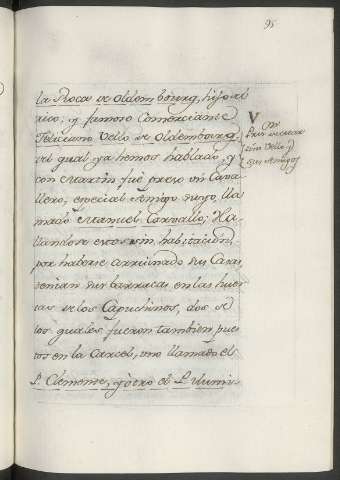 95
la Roca de Oldembourg, hijo del
rico, y famoso Comerciante
Feliciano Vello de Oldembourg,
del qual ya hemos hablado, y
con Martin fue preso un Cava-
llero, especial Amigo suyo, lla-
mado Manuel Carvallo; Ha-
llandose estos sin habitacion,
por haberse arruinado sus Casas
tenian sus barracas en las huer-
tas de los Capuchinos, dos de
los quales fueron tambien pues-
tos en la Carcel, uno llamado el
P. Clemente, y otro el P. Ylumi-
V
tino Vello, y
sus Amigos